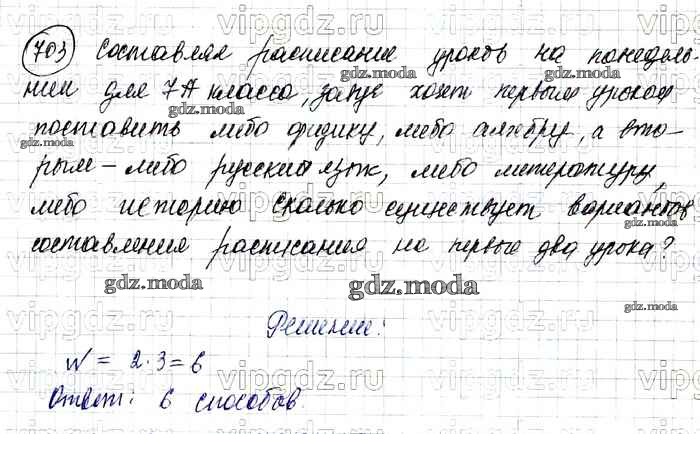 703 Составляя расписание уроков на понедель-
ник для 7А класса, завуч хочет первым уроком
поставить либо физику, либо алгебру, а вто-
рым - либо русский язык, либо литературу,
либо историю Сколько существует вариантов
составления расписания на первые два урока?
Решение:
N = 2·3=6
Ответ: 6 способов.
vipgdz.ru
gdz.moda